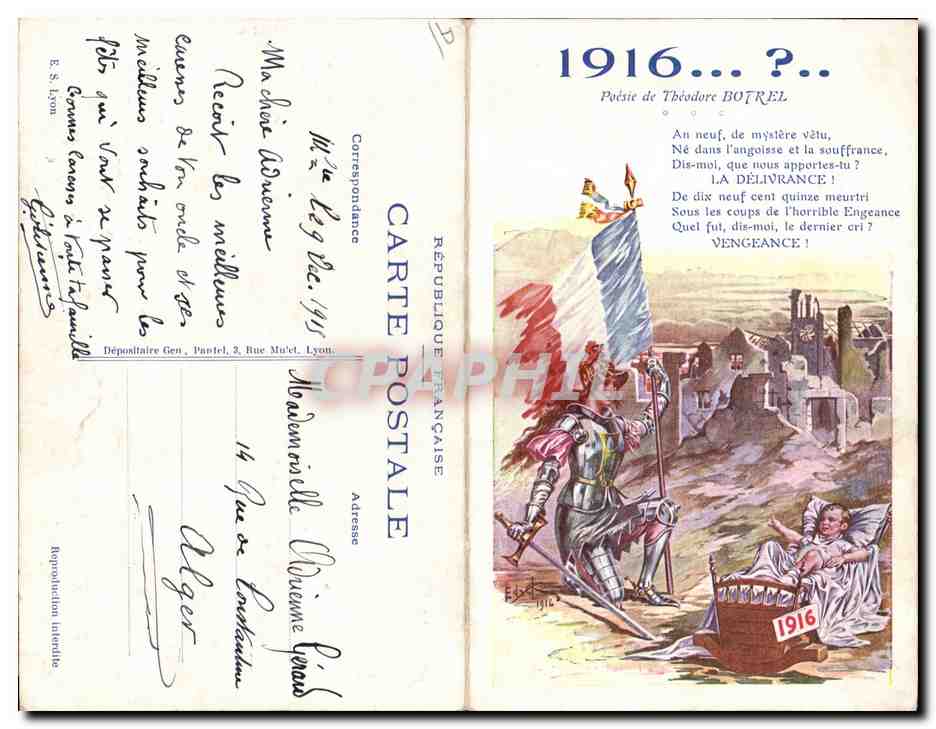 RÉPUBLIQUE FRANÇAISE
CARTE POSTALE
Correspondance
Adresse
le 9 Déc. 1915
Ma chère Adrienne
Reçoit les meilleures
caresses de ton oncle et ses
meilleurs souhaits pour les
fêtes qui vont se passer
Bonnes caresses à toute ta famille
E. S. Lyon
Dépositaire Gen, Pantel, 3, Rue Mulet, Lyon.
Mademoiselle Adrienne Gérard
14 Rue de Constantine
Alger
Reproduction interdite
D
1916... ?..
Poésie de Théodore BOTREL
An neuf, de mystère vêtu,
Né dans l'angoisse et la souffrance,
Dis-moi, que nous apportes-tu ?
LA DÉLIVRANCE !
De dix neuf cent quinze meurtri
Sous les coups de l'horrible Engeance
Quel fut, dis-moi, le dernier cri ?
VENGEANCE !
1916
1916
CPAPHIL.COM